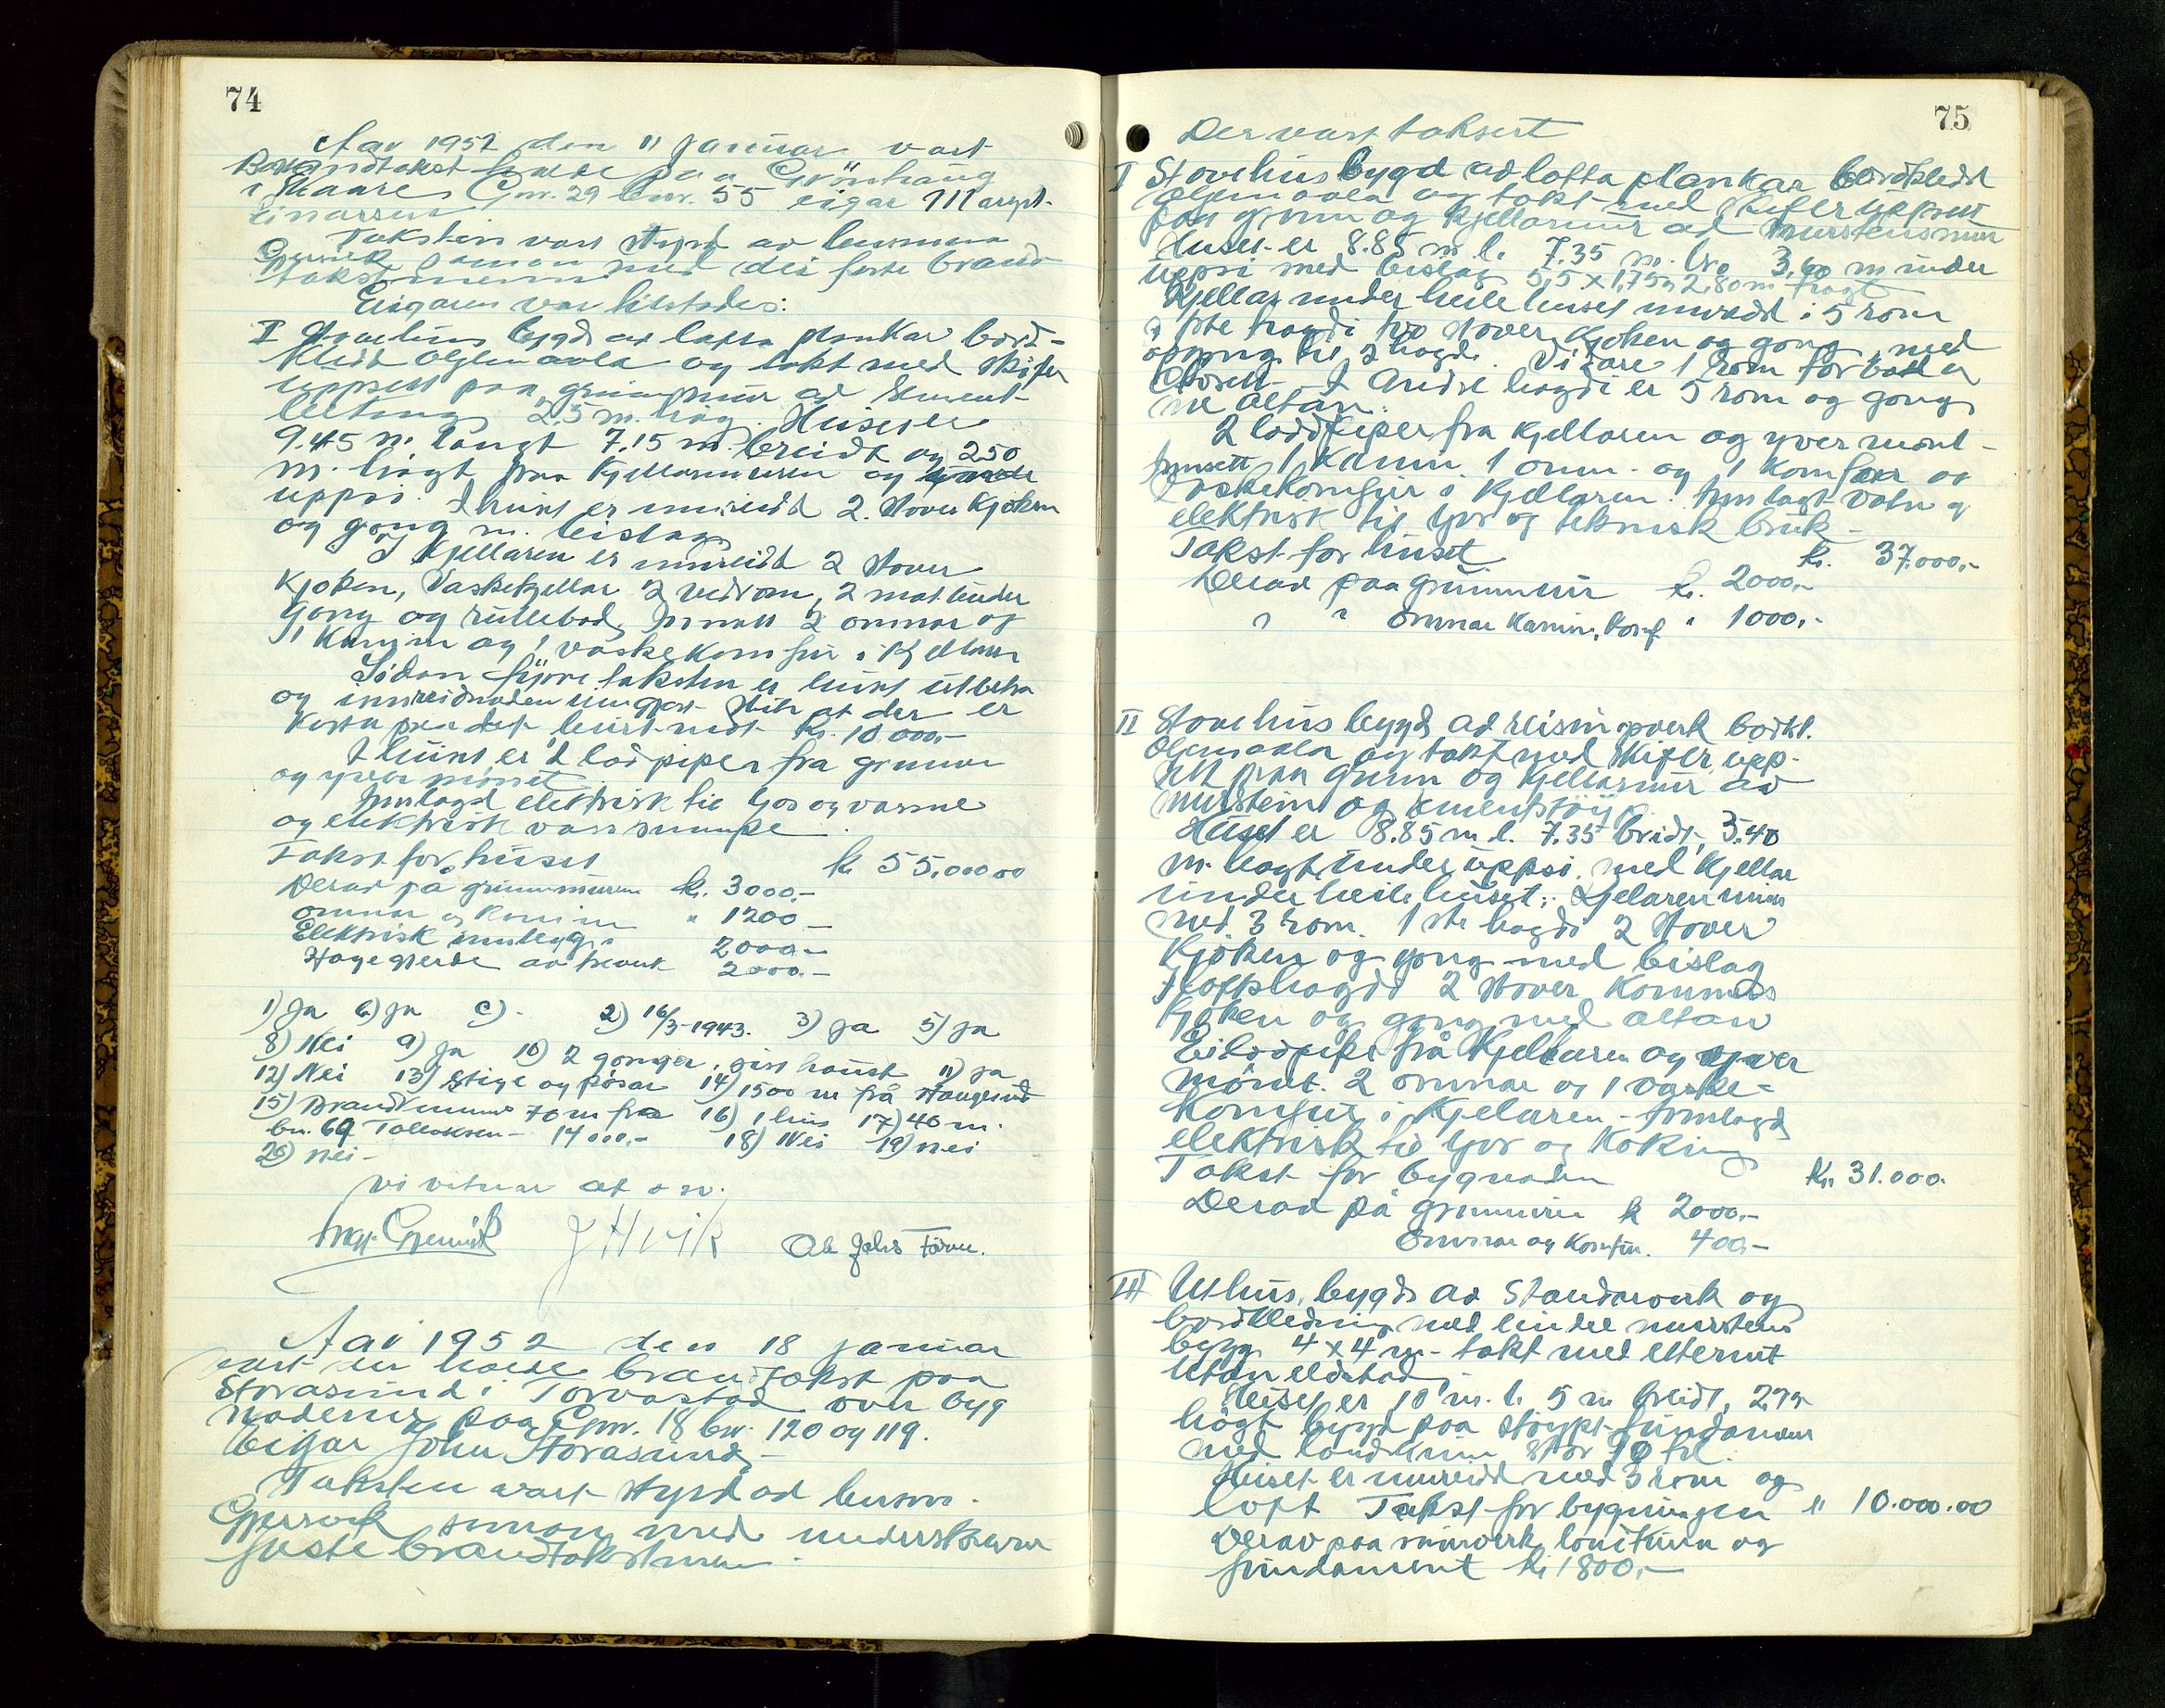 74
Aar 1952 den 11 januar vart
Brandtakst halde paa Grönhaug
i Skaare Gnr. 29 bnr. 55 eigar Margit
Einarsen
Taksten vart styrd av lensmann
Gjersvik saman med dei faste brand-
takstmenn
Eigaren var tilstades:
I Stovehus bygd av lafta plankar bord-
kledd oljemaala og takt med skifer
uppsett paa grunnmur av sement-
2.5 m. høg. Huset er
9.45 m. langt 7.15 m. breidt og 2.50
m. høgt paa kjellarmuren og under
uppsi. I huset er innreidd 2 stover kjøken
og gong m. bislag
I kjellaren er innreidd 2 stover
kjøken, Vaskekjellar 2 vedrom, 2 mat
gong og rullebod, Innsett 2 omnar og
1 kamin og 1 vaskekomfur i kjellaren
Sidan fyrre taksten er huset utbetra
og innreidnaden Slik at der er
kosta paa det heist nest kr. 10 000.-
I huset er 2 lodpiper fra grunnen
og yver mønet
Innlagd elektrisk til ljos og varme
og elektrisk vasspumpe.
Takst for huset kr 55.000 00
Derav på grunnmuren kr. 3000.-
omnar og kamin " 1200 -
Elektrisk innlegg " 2000.-
Hagegjerde av 2000.-
1) Ja b) ja c) - 2) 16/3-1943. 3) ja 5) ja
8) Nei 9) ja 10) 2 gonger, siss haust 11) ja
12) Nei 13) Stige og pøsar 14) 1500 m frå Haugesund
15) Brandkumme 70 m fra 16) 1 hus 17) 40 m.
bn. 69 Tollaksen - 14000.- 18) Nei 19) nei
20) nei -
Vi vitnar at o sv.
Ingv. Gjersvik J H Vik Ole Johs Førre.
Aar 1952 den 18 januar
vart der halde brandtakst paa
Storasund i Torvastad over byg
nadene paa Gnr. 18 bnr. 120 og 119.
Eigar John Storasund.-
Taksten vart styrd ad lensm.
Gjersvik saman med underskrevne
faste brandtakstmenn.
75
Der vart taksert
I Stovehus bygd ad lafta plankar bordkledd
oljemaala og takt med skifer uppsett
paa grunn og kjellarmur ad murstensmur
Huset er 8.85 m. l. 7.35 m. br. 3,60 m under
uppsi med bislag 5,5 x 1,75 2,80 m høgt
Kjellar under heile huset innredd i 5 rom
I 1ste høgdi tvo stover, kjøken og gong, med
uppgng til 2 høgdi. Vidare 1 rom for bad og
closett - I andre høgdi er 5 rom og gong
m altan.
2 loddpiper fra kjellaren og yver mønet -
Innsett 1 kamin 1 omn - og 1 komfur og
Vaskekomfur i kjellaren. Innlagt vatn og
elektrisk til ljos og teknisk bruk -
Takst for huset kr. 37.000,-
Derad paa grunnmur kr. 2000,-
" " omnar kamin, komf. " 1000,-
II Stovehus bygd ad reisingverk bordkl.
oljemaala og takt med skifer, upp-
sett paa grunn og kjellarmur ad
murstein og sementstøyp.
Huset er 8.85 m. l. 7.35 breidt, 3.40
m. høgt under uppsi, med kjellar
under heile huset. Kjelaren innr
med 3 rom. 1 ste høgdi 2 stover
kjøken og gong med bislag
I lofthøgdi 2 stover kammers
kjøken og gong med altan
Ei lodpipe frå kjellaren og yver
mønet. 2 omnar og 1 vaske-
komfur i kjelaren - Innlagd
elektrisk til ljos og koking
Takst for bygnaden Kr. 31.000.
Derav på grunnmur kr 2000,-
omnar og komfur. 400,-
III Uthus, bygd ad standarverk og
bordkledning med mursteins
bygg 4 x 4 m - takt med etternit
utan eldstad
Huset er 10 m. l. 5 m breidt, 2.75
høgt bygd paa støypt fundament
med landkum stor 90 hl.
Huset er innreidd med 3 rom og
loft Takst for bygningen " 10.000.00
Derav paa murverk landkum og
fundament kr 1800,-